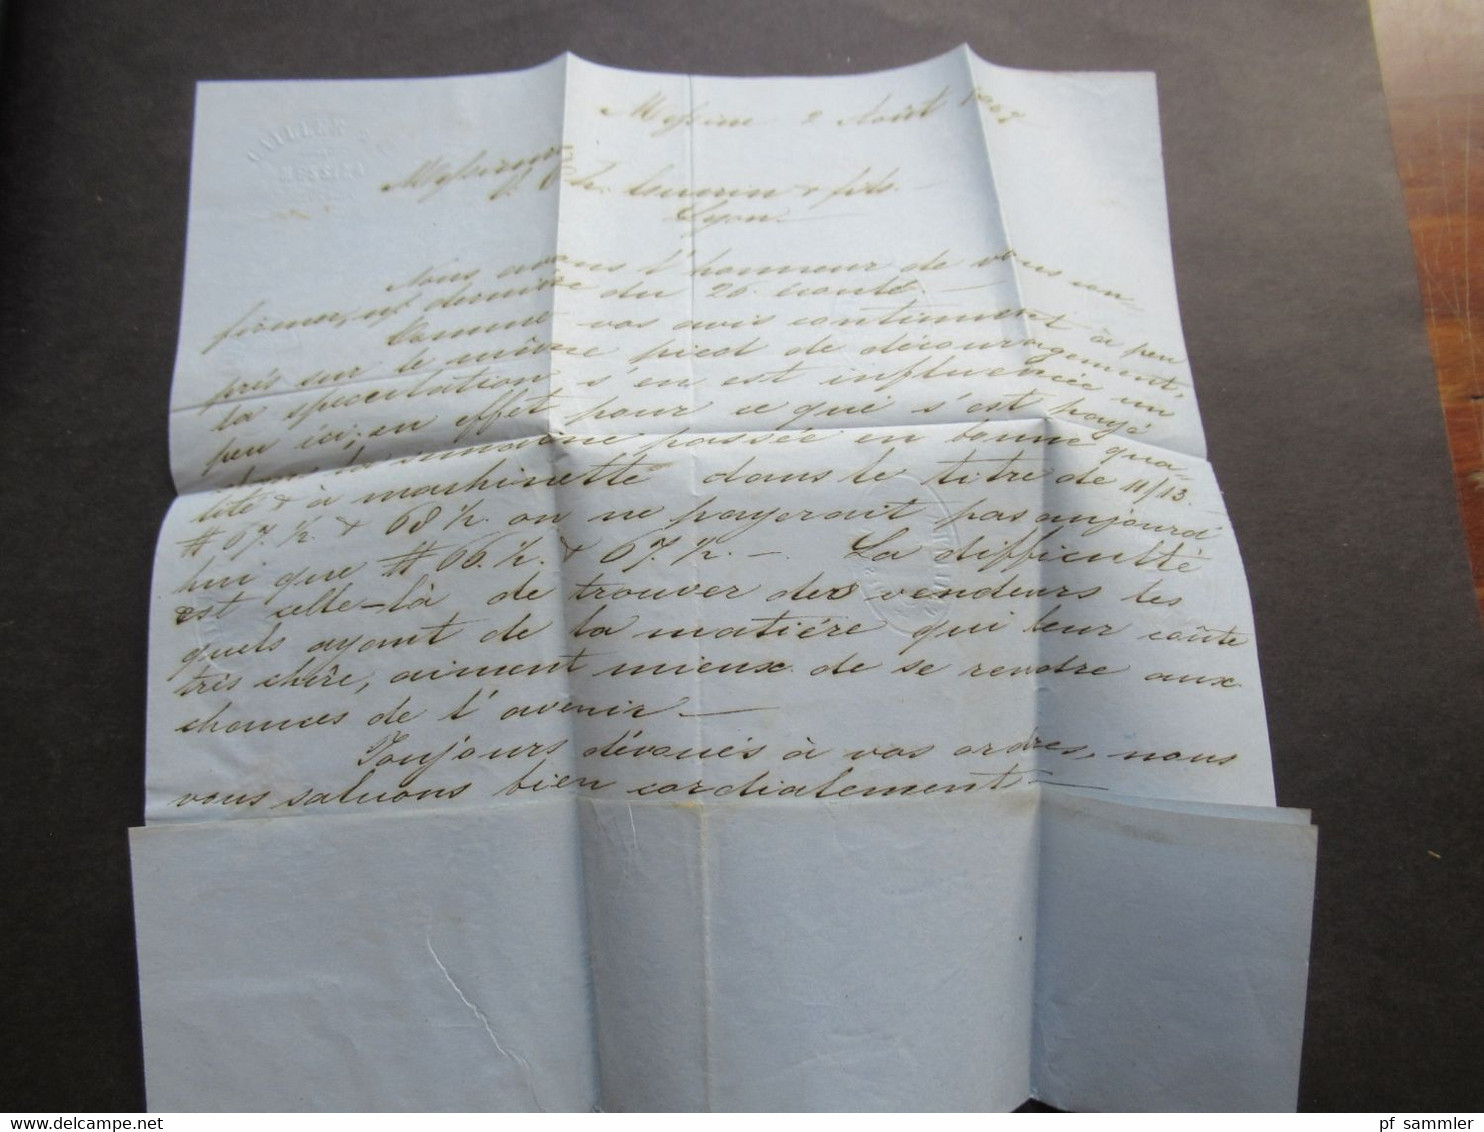 CAILLER & C
MESSINA
Messine 2 Août
Messieurs
& fils.
Lyon.
Nous avons l'honneur de vous con
firmer, nt dernière du 26. écoulé.
Comme vos avis continuent à peu
près sur le même pied de découragement,
la spéculation s'en est influencée un
peu ici; en effet pour ce qui s'est payé
dans la semaine passée en bonne qua-
lité & à machinette dans le titre de 11/13.
# 67. ½ & 68 ½. on ne payerait pas aujourd
hui que # 66. ½. & 67. ½. — La difficulté
est celle-là de trouver des vendeurs les
quels ayant de la matière qui leur coûte
très chère, aiment mieux de se rendre aux
chances de l'avenir —
Toujours dévoués à vos ordres, nous
vous saluons bien cordialement —
www.delcampe.net
pf_sammler